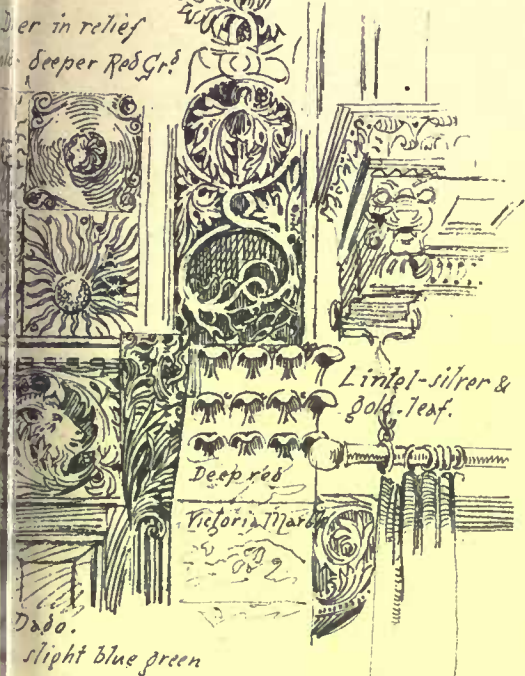 in relief
deeper Red Grd
Lintel-silver &
gold-leaf.
Deep red
Victoria Marble
Dado.
slight blue green